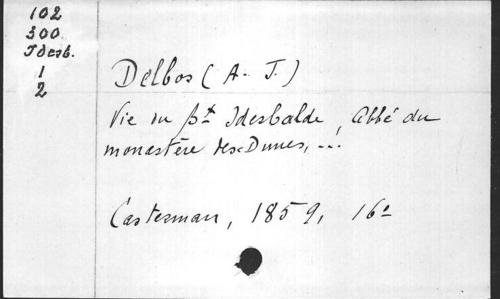 102
300
Idesb.
1
2
Delbos (A. J.)
Vie du Bt Idesbalde, Abbé du
monastère des-Dunes, ...
Casterman, 1859, 16°